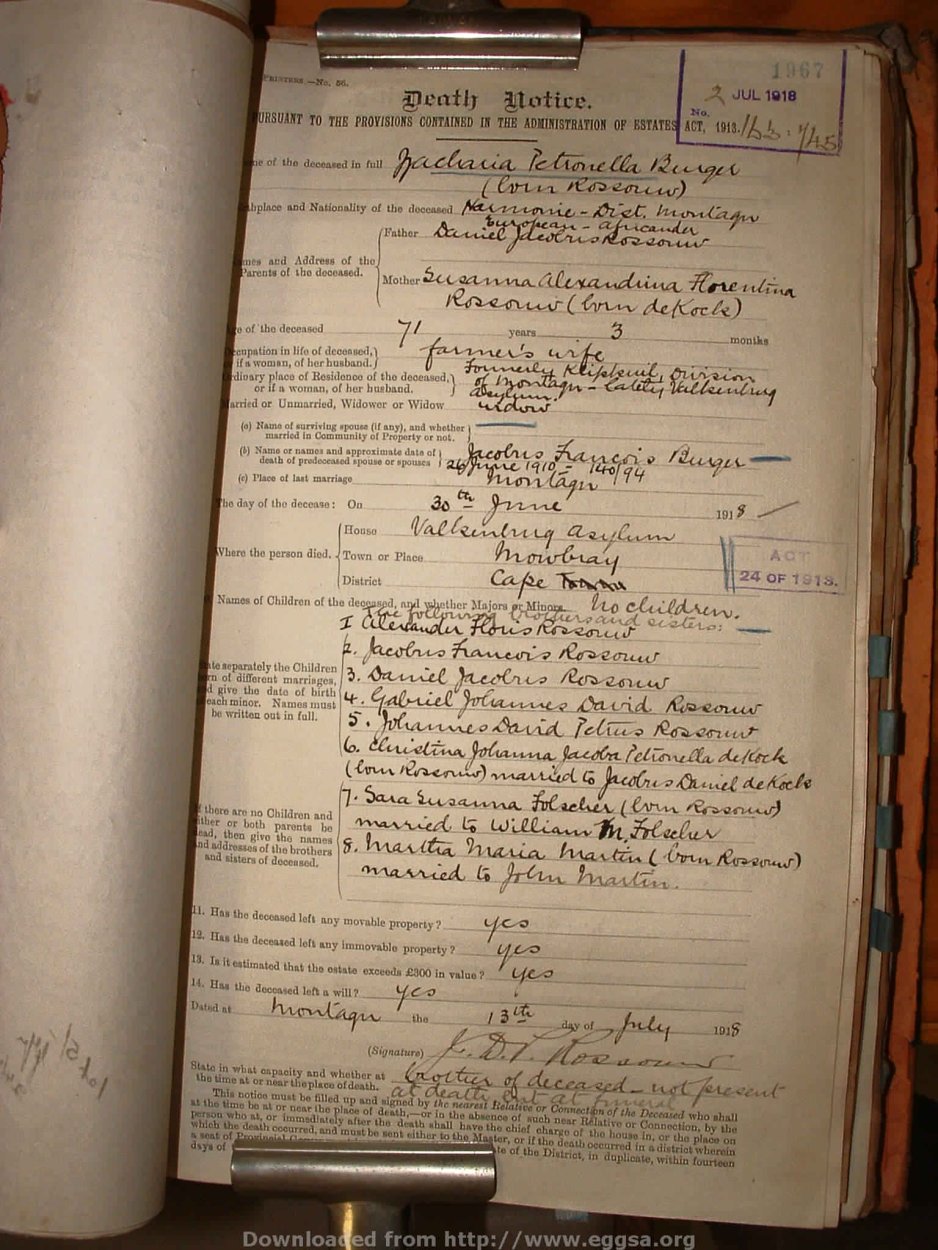 PRINTERS —No. 56.
1967
2 JUL 1918
No.
Death Notice.
PURSUANT TO THE PROVISIONS CONTAINED IN THE ADMINISTRATION OF ESTATES ACT, 1913.
me of the deceased in full Zacharia Petronella Burger
(born Rossouw)
hplace and Nationality of the deceased Harmonie - Dist. Montagu
European - africander
Father Daniel Jacobus Rossouw
mes and Address of the
Parents of the deceased.
Mother Susanna Alexandrina Florentina
Rossouw (born de Kock)
ge of the deceased 71 years 3 months
ccupation in life of deceased,
if a woman, of her husband. farmer's wife
Formerly Klipkuil, Division
rdinary place of Residence of the deceased,
or if a woman, of her husband. of Montagu - Lately Valkenburg
Asylum.
arried or Unmarried, Widower or Widow widow
(a) Name of surviving spouse (if any), and whether
married in Community of Property or not.
(b) Name or names and approximate date of
death of predeceased spouse or spouses Jacobus Francois Burger
26 June 1910 - 140/94
(c) Place of last marriage Montagu
he day of the decease: On 30th June 1918
Where the person died.
House Valkenburg Asylum
Town or Place Mowbray
District Cape
ACT
24 OF 1913.
Names of Children of the deceased, and whether Majors or Minors. No children.
The following brothers and sisters:
1 Alexander Floris Rossouw
2. Jacobus Francois Rossouw
ate separately the Children
rn of different marriages,
d give the date of birth
each minor. Names must
be written out in full.
3. Daniel Jacobus Rossouw
4. Gabriel Johannes David Rossouw
5. Johannes David Petrus Rossouw
6. Christina Johanna Jacoba Petronella de Kock
(born Rossouw) married to Jacobus Daniel de Kock
7. Sara Susanna Folscher (born Rossouw)
married to William M. Folscher
8. Martha Maria Martin (born Rossouw)
married to John Martin.
f there are no Children and
ither or both parents be
ead, then give the names
nd addresses of the brothers
and sisters of deceased.
11. Has the deceased left any movable property? yes
12. Has the deceased left any immovable property? yes
13. Is it estimated that the estate exceeds £300 in value? yes
14. Has the deceased left a will? yes
Dated at Montagu the 13th day of July 1918
(Signature) J. D. P. Rossouw
State in what capacity and whether at
the time at or near the place of death. brother of deceased - not present
at death but at funeral
This notice must be filled up and signed by the nearest Relative or Connection of the Deceased who shall
at the time be at or near the place of death,—or in the absence of such near Relative or Connection, by the
person who at, or immediately after the death shall have the chief charge of the house in, or the place on
which the death occurred, and must be sent either to the Master, or if the death occurred in a district wherein
a seat of Provincial te of the District, in duplicate, within fourteen
days of
Downloaded from http://www.eggsa.org